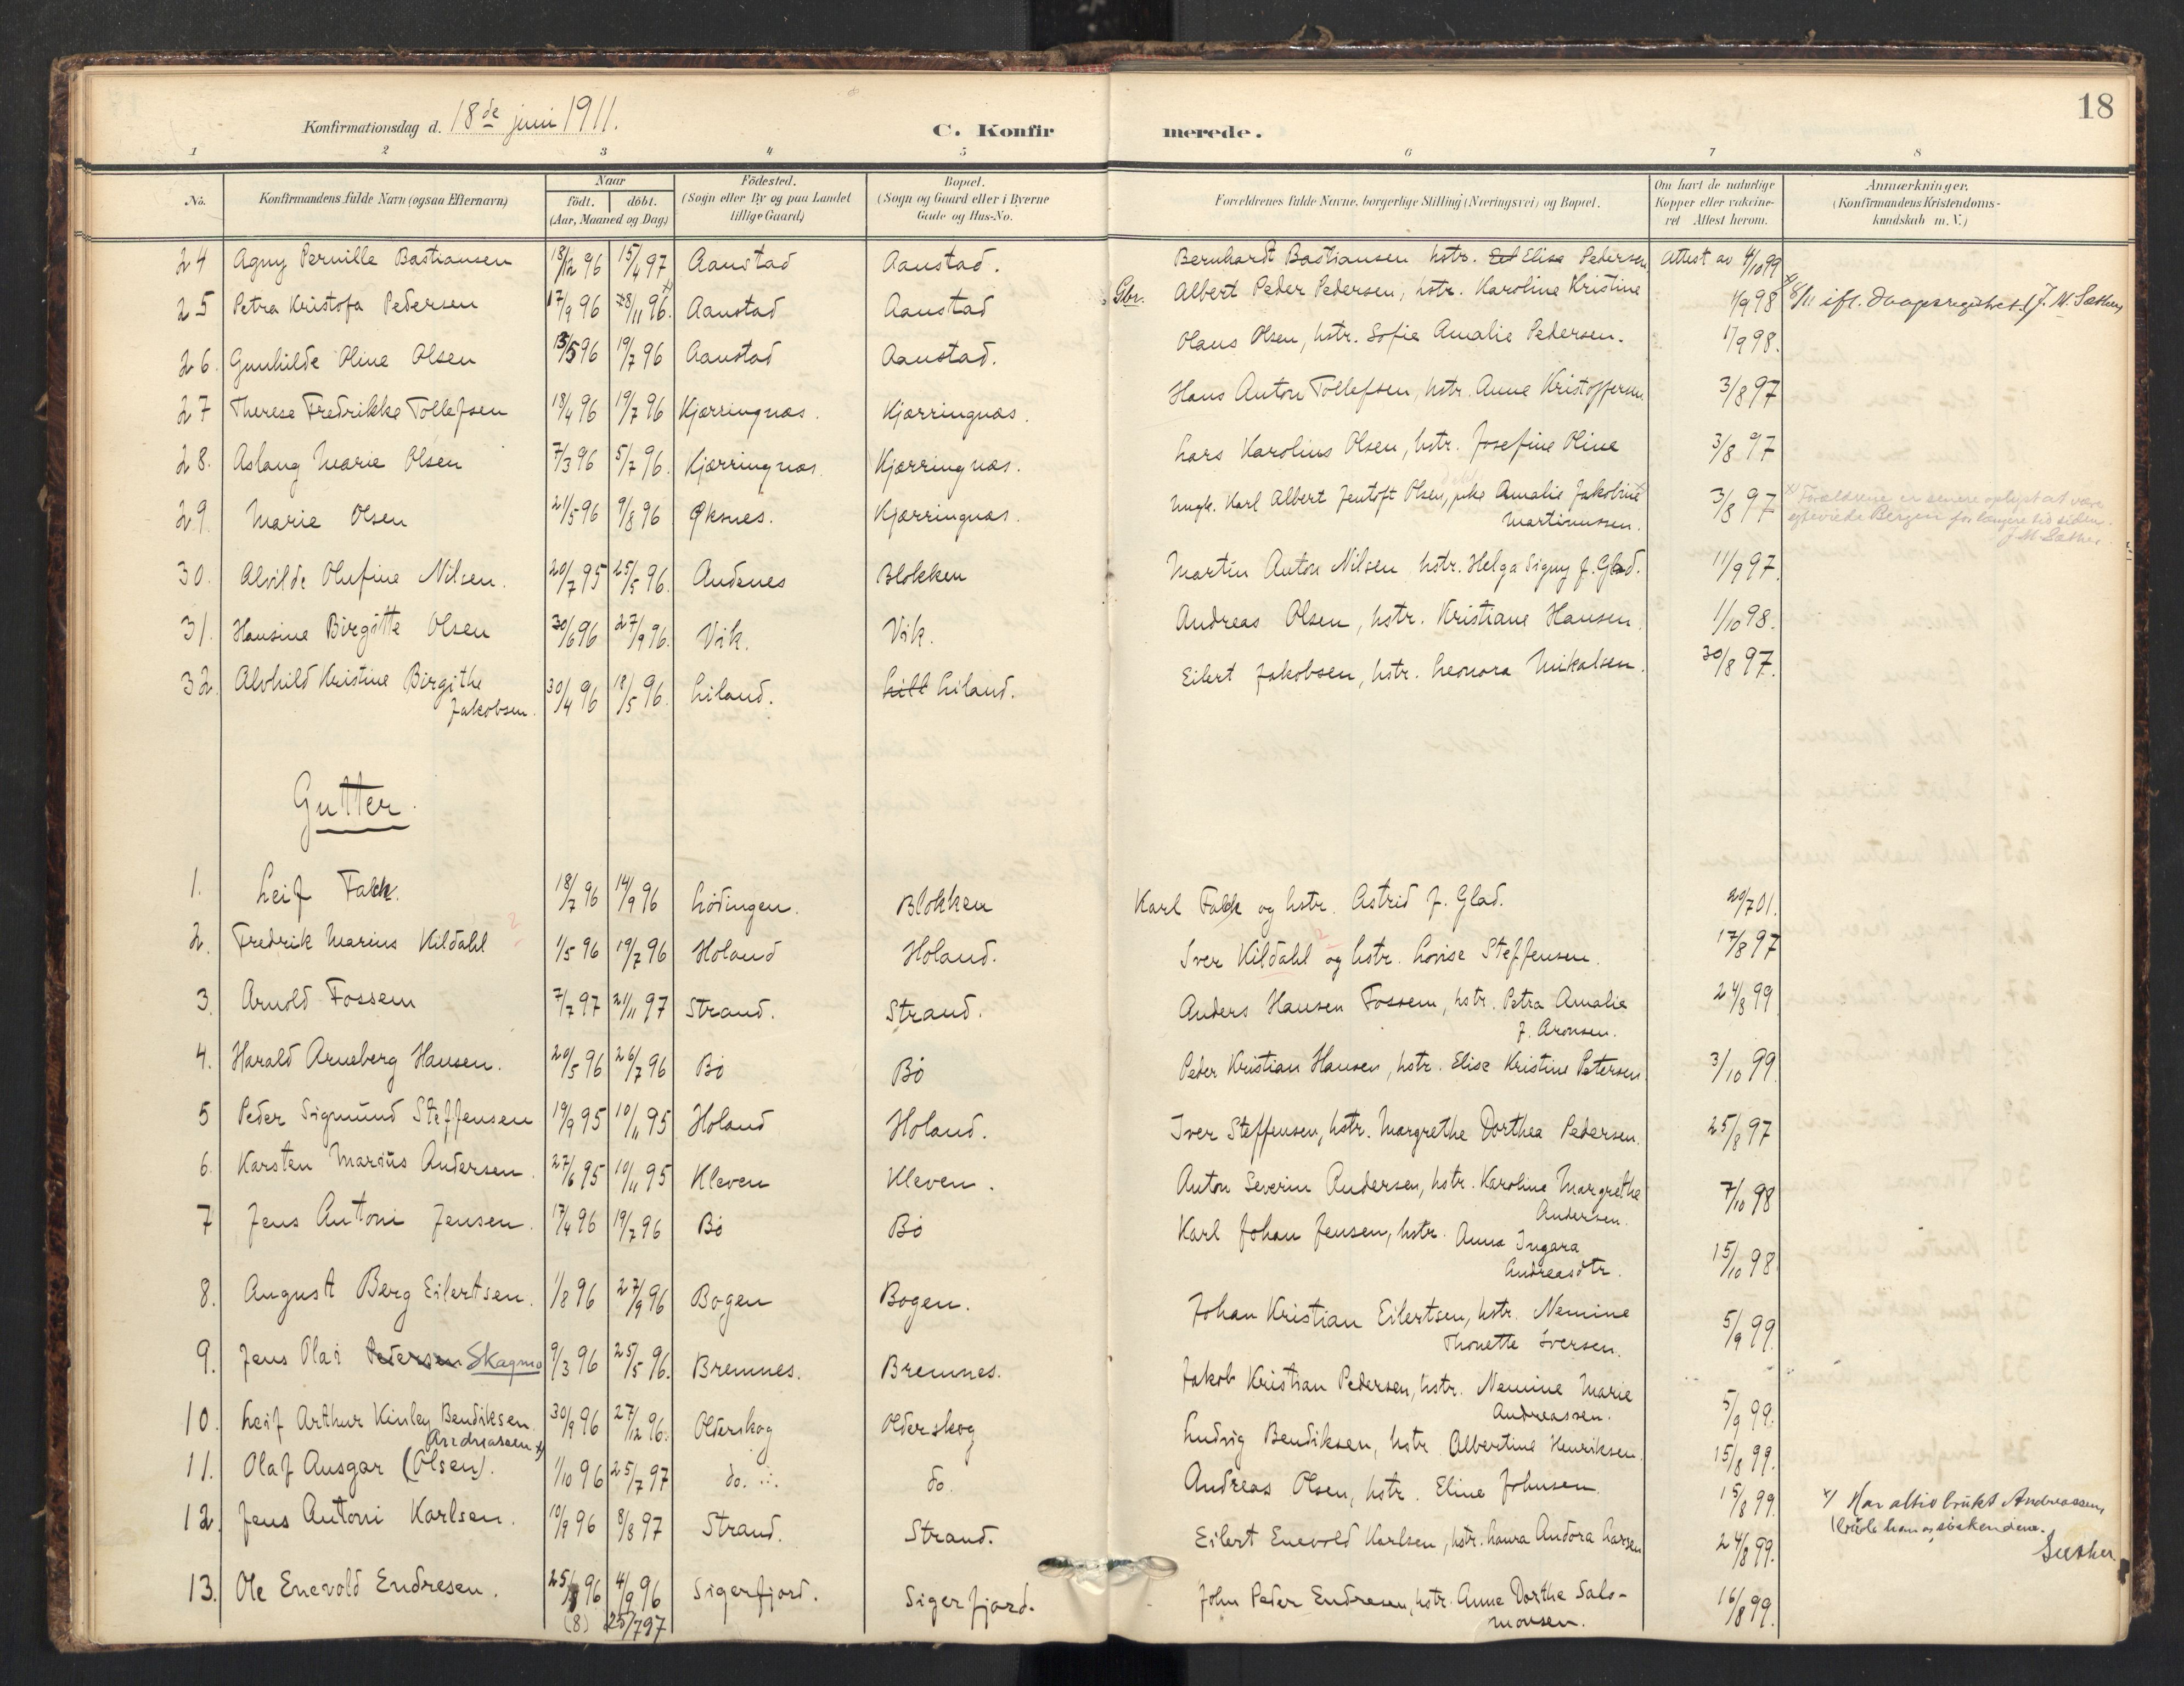 18
Konfirmationsdag d. 18de juni 1911. C. Konfirmerede.
1 2 3 4 5 6 7 8
No. Konfirmandens fulde Navn (ogsaa Efternavn) Naar födt. döbt. (Aar, Maaned og Dag.) Födested. (Sogn eller By og paa Landet tillige Gaard.) Bopæl. (Sogn og Gaard eller i Byerne Gade og Hus-No. Forældrenes fulde Navne, borgerlige Stilling (Næringsvei) og Bopæl. Om havt de naturlige Kopper eller vakcineret Attest herom. Anmærkninger. (Konfirmandens Kristendomskundskab m. V.)
24 Agny Pernille Bastiansen 18/12 96 15/4 97 Aanstad Aanstad. Bernhardt Bastiansen hstr. Elise Pedersen Attest av 4/10 99
25 Petra Kristofa Pedersen 17/9 96 28/11 96. x) Aanstad Aanstad Gbr. Albert Peder Pedersen, hstr. Karoline Kristine 1/9 98 x) 8/11 ifl. daapsregistret. J. M. Sæther
26. Gunhilde Oline Olsen 13/5 96 19/7 96 Aanstad Aanstad. Olaus Olsen, hstr. Sofie Amalie Pedersen. 17/9 98.
27 Therese Fredrikke Tollefsen 13/4 96 19/7 96 Kjærringnæs. Kjærringnæs. Hans Anton Tollefsen, hstr. Anne Kristoffersen 3/8 97
28. Aslaug Marie Olsen 7/3 96 5/7 96. Kjærringnæs. Kjærringnæs. Lars Karolius Olsen, hstr. Josefine Oline 3/8 97
29. Marie Olsen 21/5 96 9/8 96 Øksnes. Kjærringnæs. Ungk. Karl Albert Jentoft Olsen, pike Amalie Jakobine Martinussen. 3/8 97 x) Forældrene er senere oplyst at være egteviede Bergen for længere tid siden. J. M. Sæther
30. Alvilde Olufine Nilsen. 20/7 95 25/5 96. Andenes Blokken Martin Anton Nilsen hstr. Helga Signy f. Glad. 11/9 97.
31. Hansine Birgitte Olsen 30/6 96 27/9 96. Vik. Vik. Andreas Olsen, hstr. Kristiane Hansen. 1/10 98.
32. Alvhild Kristine Birgithe Jakobsen. 30/4 96 18/5 96. Liland. Lill Liland. Eilert Jakobsen, hstr. Leonora Mikalsen. 30/8 97.
Gutter.
1. Leif Falck. 18/7 96 14/9 96 Lödingen. Blokken Karl Falck og hstr. Astrid f. Glad. 20/7 01.
2. Fredrik Marius Kildahl 1/5 96 19/7 96 Holand Holand. Iver Kildahl og hstr. Lovise Steffensen. 17/8 97
3. Arnold Fossem 7/7 97 21/11 97 Strand. Strand. Anders Hansen Fossem, hstr. Petra Amalie f. Aronsen. 24/8 99
4. Harald Arneberg Hansen. 20/5 96 26/7 96 Bö Bö Peder Kristian Hansen, hstr. Elise Kristine Petersen. 3/10 99.
5 Peder Sigmund Steffensen 19/9 95 10/11 95 Holand Holand. Iver Steffensen, hstr. Margrethe Dorthea Pedersen. 25/8 97
6. Karsten Marius Andersen. 27/6 95 10/11 95 Kleven Kleven. Anton Severin Andersen, hstr. Karoline Margrethe Andersen. 7/10 98
7 Jens Antoni Jensen. 17/4 96 19/7 96 Bö Bö Karl Johan Jensen, hstr. Anna Ingara Andreasdtr. 15/10 98.
8. August Berg Eilertsen. 1/8 96 27/9 96 Bogen Bogen. Johan Kristian Eilertsen, hstr. Nemine Thonette Iversen. 5/9 99.
9. Jens Olai Petersen Skagmo 9/3 96 25/5 96. Bremnes. Bremnes. Jakob Kristian Pedersen, hstr. Nemine Marie Andreassen. 5/9 99.
10. Leif Arthur Kinley Bendiksen. 30/9 96 27/12 96. Olderskog Olderskog Ludvig Bendiksen, hstr. Albertine Henriksen. 15/8 99.
11. Olaf Ansgar (Olsen). Andreassen x) 1/10 96 25/7 97 do. do. Andreas Olsen, hstr. Eline Johnsen. 15/8 99. x) Har altid brukt Andreassen, baade han og söskendene. Sæther
12. Jens Antoni Karlsen. 10/9 96 8/8 97 Strand. Strand. Eilert Enevold Karlsen, hstr. Laura Andora Larsen 24/8 99.
13. Ole Enevold Endresen. 25/8 96 (8) 4/9 96 25/7 97 Sigerfjord. Sigerfjord. John Peder Endresen, hstr. Anne Dorthe Salomonsen. 16/8 99.